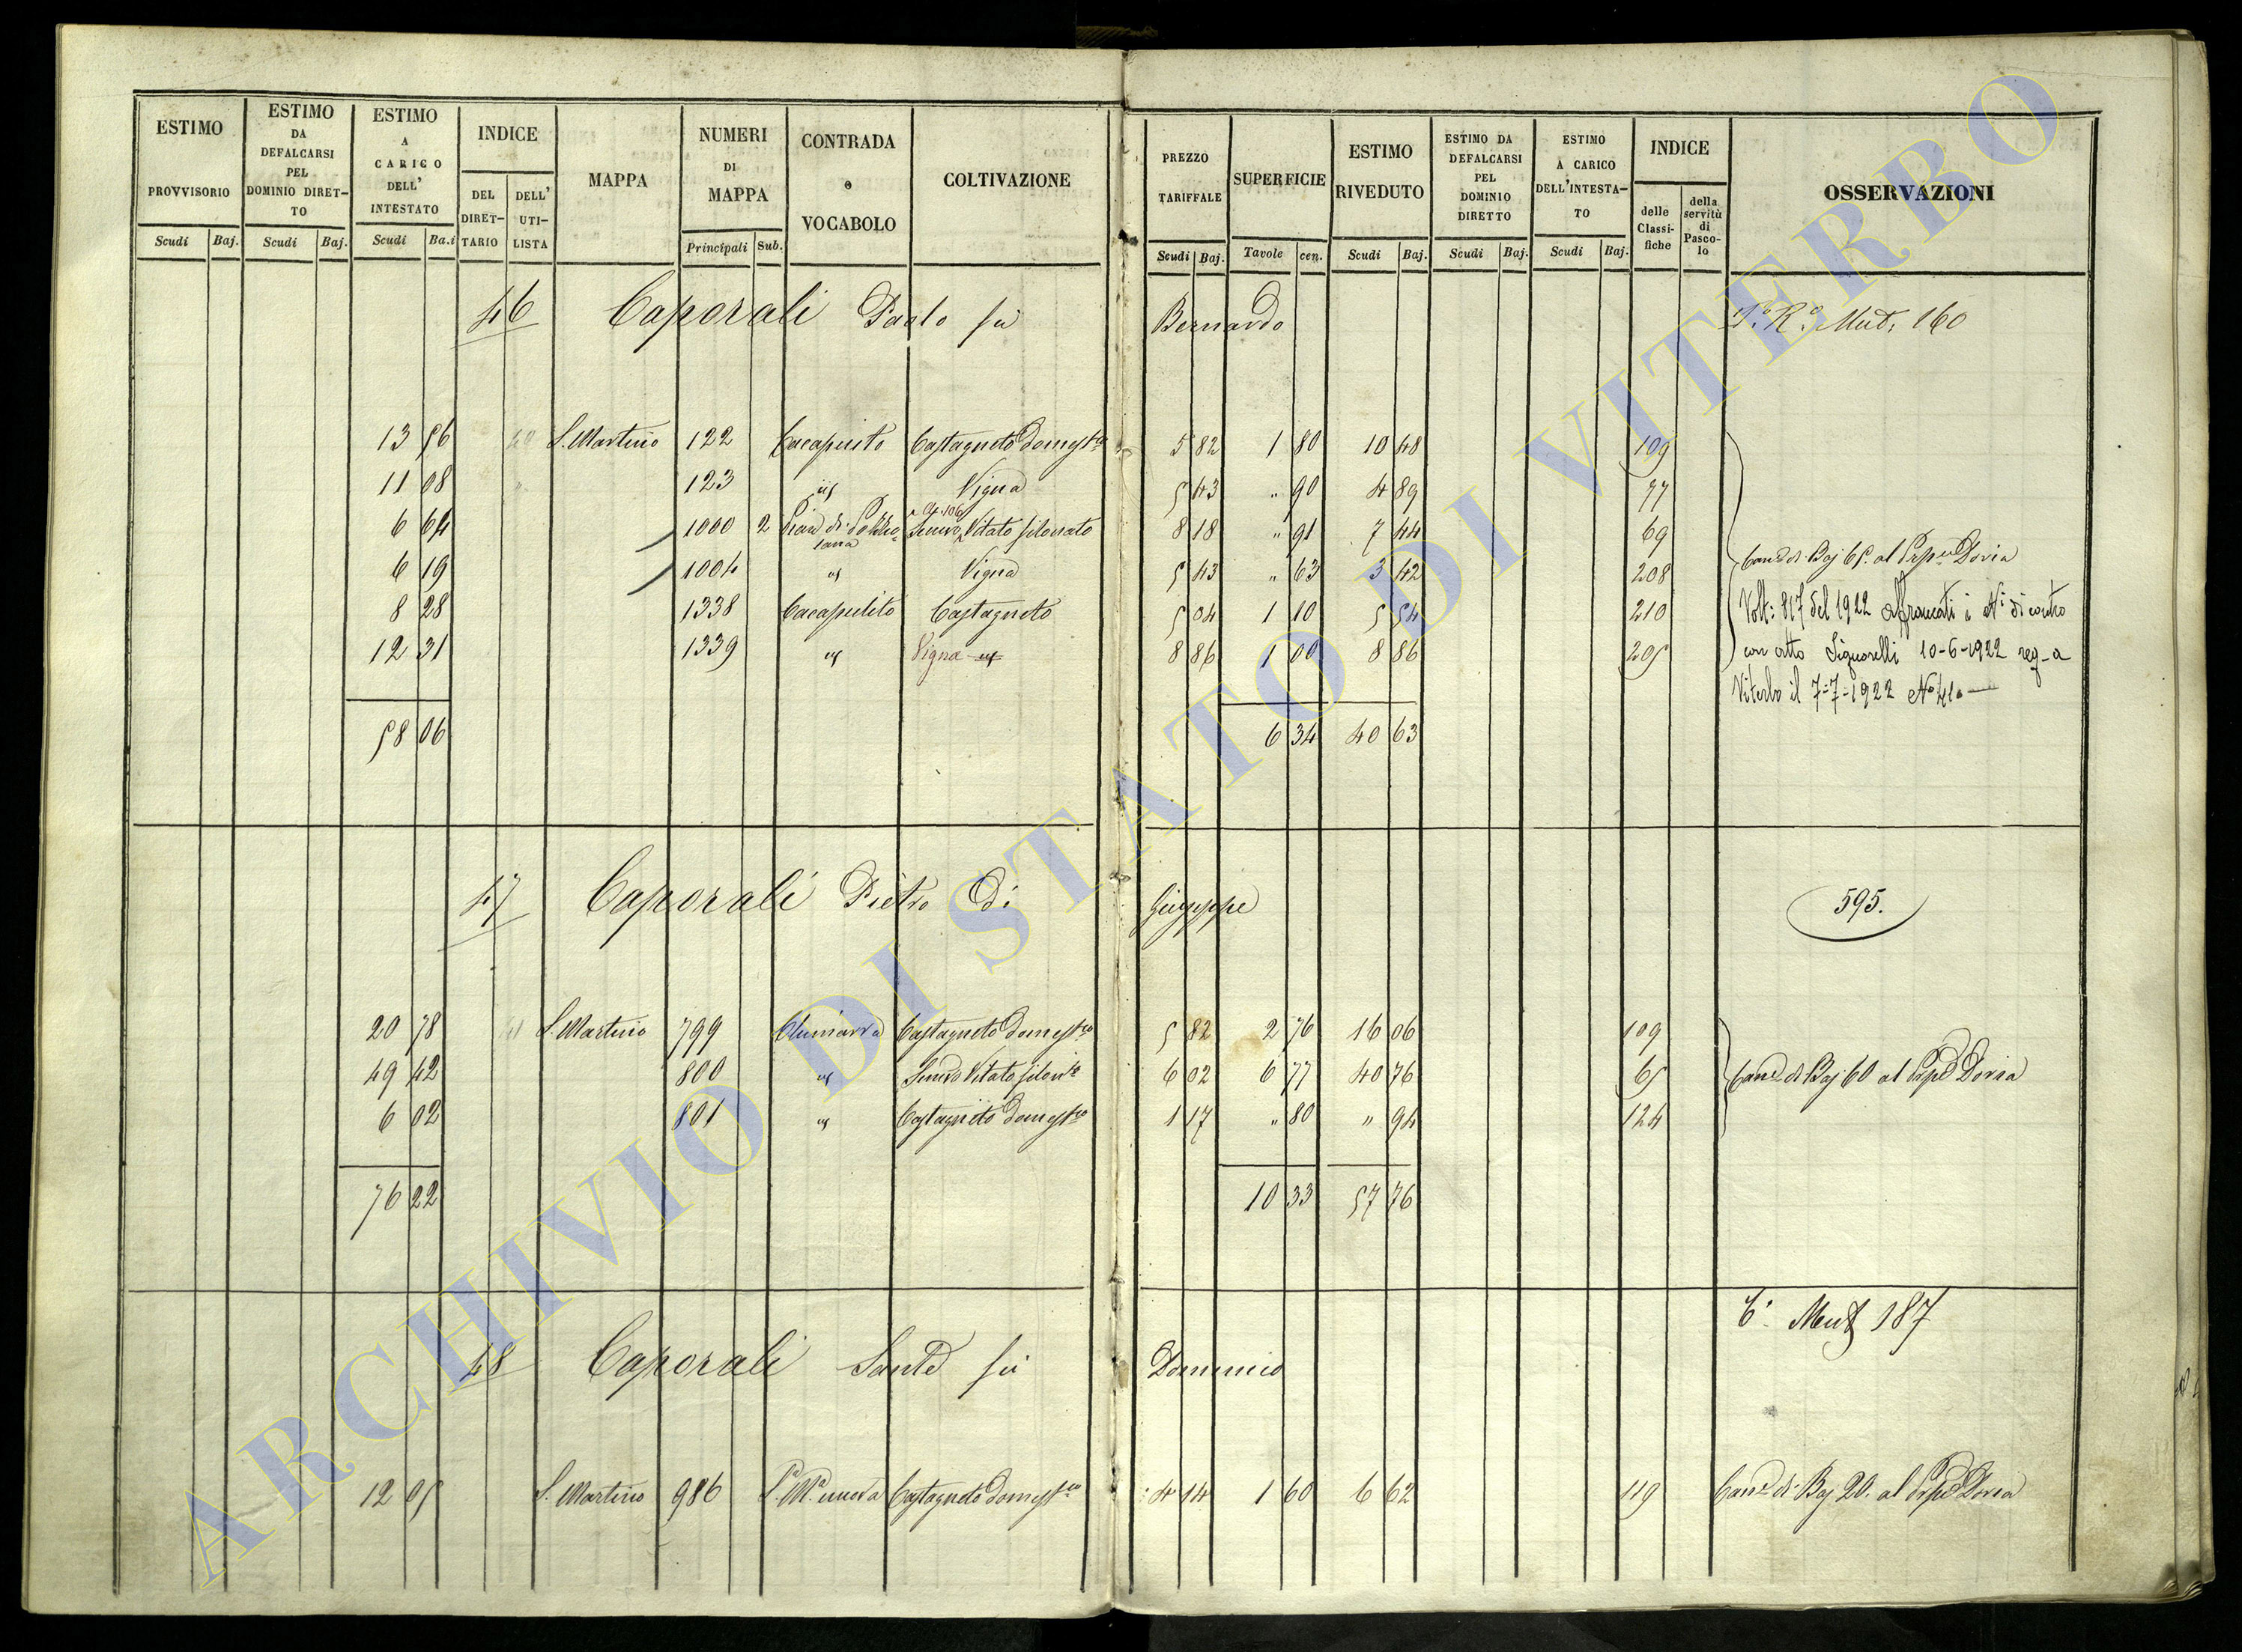 ESTIMO PROVVISORIO Scudi Baj.
ESTIMO DA DEFALCARSI PEL DOMINIO DIRET- TO Scudi Baj.
ESTIMO A CARICO DELL' INTESTATO Scudi Ba.i
INDICE DEL DIRET- TARIO DELL' UTI- LISTA
MAPPA
NUMERI DI MAPPA Principali Sub.
CONTRADA o VOCABOLO
COLTIVAZIONE
PREZZO TARIFFALE Scudi Baj.
SUPERFICIE Tavole cen.
ESTIMO RIVEDUTO Scudi Baj.
ESTIMO DA DEFALCARSI PEL DOMINIO DIRETTO Scudi Baj.
ESTIMO A CARICO DELL'INTESTA- TO Scudi Baj.
INDICE delle Classi- fiche della servitù di Pasco- lo
OSSERVAZIONI
46 Caporali Paolo fu Bernardo Mut. 160
13 56 S. Martino 122 Castagneto Domest.co 5 82 1 80 10 48 109
11 08 123 Vigna 5 43 " 90 4 89 77
6 64 1000 2 Pian di Vitato filonato 8 18 " 91 7 44 69
6 19 1004 Vigna 5 43 " 63 3 42 208
8 28 1338 Castagneto 5 04 1 10 5 54 210
12 31 1339 Vigna 8 86 1 00 8 86 205
Can.e di Baj 65. al Doria
Volt: 817 del 1922 Affrancati i N.i di contro
con atto Signorelli 10-6-1922 reg-a
Viterbo il 7-7-1922 N°
58 06 6 34 40 63
47 Caporali Pietro di Giuseppe 595.
20 78 41 S. Martino 799 Castagneto Domest.co 5 82 2 76 16 06 109
49 42 800 Vitato 6 02 6 77 40 76 65 Can.e di Baj 60 al Doria
6 02 801 Castagneto Domest.co 1 17 " 80 " 94 124
76 22 10 33 57 76
Mut 187
48 Caporali Sante fu Domenico
12 05 S. Martino 986 nuova Castagneto Domest.co 4 14 1 60 6 62 119 Can.e di Baj 20. al Doria
ARCHIVIO DI STATO DI VITERBO